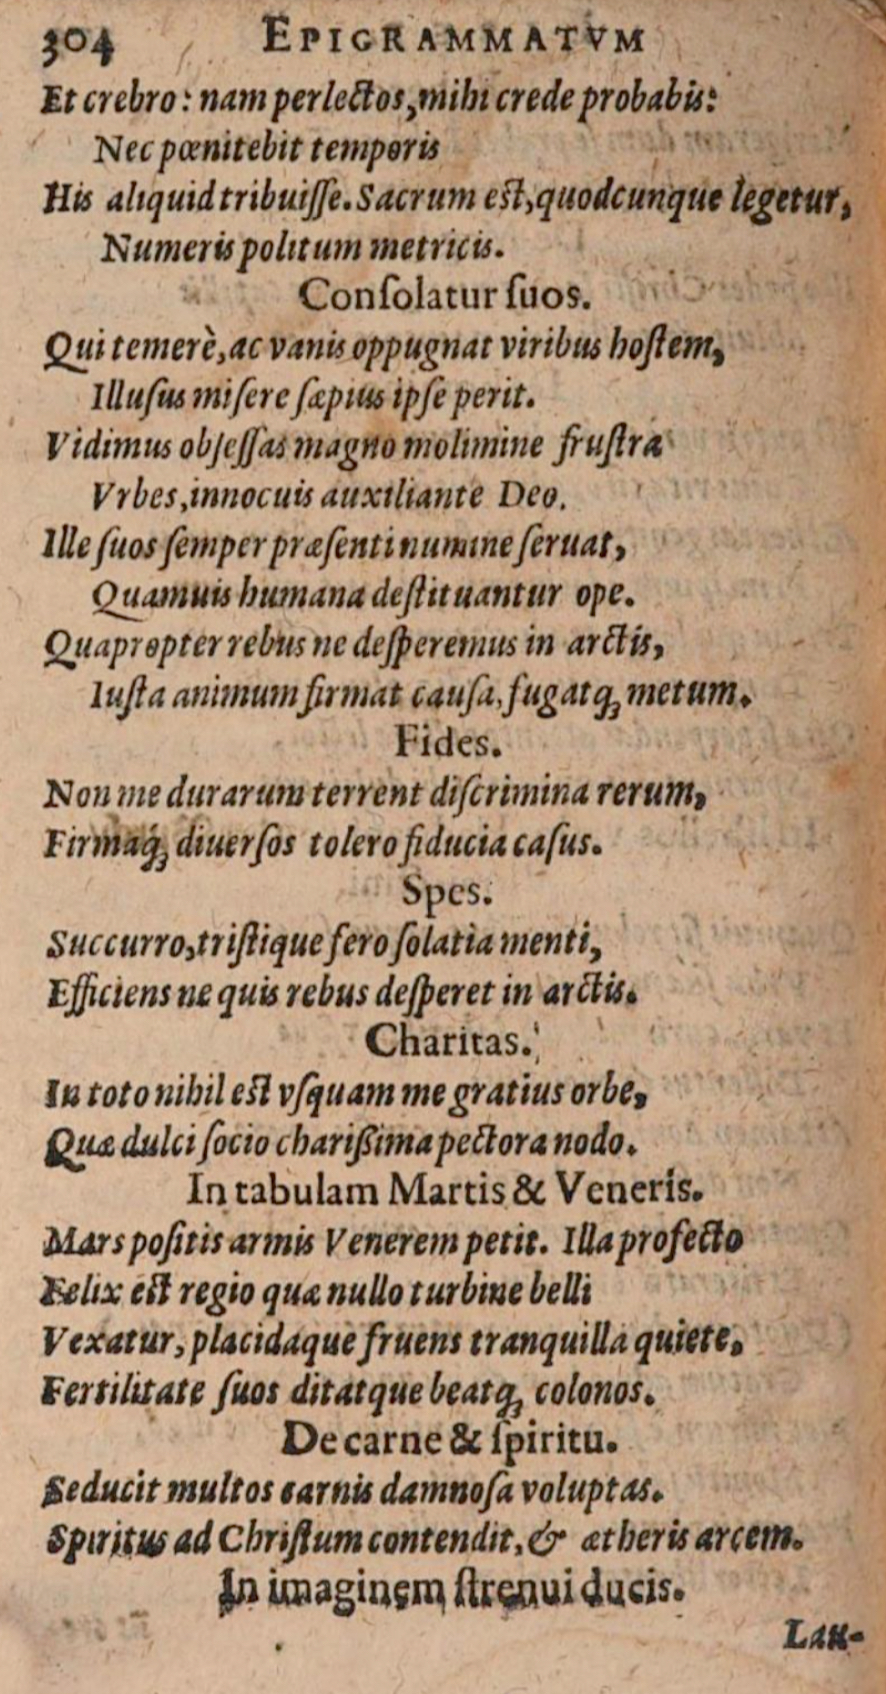 304 EPIGRAMMATVM
Et crebro: nam perlectos, mihi crede probabis:
Nec pœnitebit temporis
His aliquid tribuiſſe. Sacrum eſt, quodcunque legetur,
Numeris politum metricis.
Conſolatur ſuos.
Qui temerè, ac vanis oppugnat viribus hoſtem,
Illuſus miſere ſæpius ipſe perit.
Vidimus obſeſſas magno molimine fruſtra
Vrbes, innocuis auxiliante Deo.
Ille ſuos ſemper præſenti numine ſeruat,
Quamuis humana deſtituantur ope.
Quapropter rebus ne deſperemus in arctis,
Iuſta animum firmat cauſa, fugatq́ue metum.
Fides.
Non me durarum terrent diſcrimina rerum,
Firmaq́; diuerſos tolero fiducia caſus.
Spes.
Succurro, triſtique fero ſolatia menti,
Efficiens ne quis rebus deſperet in arctis.
Charitas.
In toto nihil eſt vſquam me gratius orbe,
Quæ dulci ſocio chariſsima pectora nodo.
In tabulam Martis & Veneris.
Mars poſitis armis Venerem petit. Illa profecto
Felix eſt regio quæ nullo turbine belli
Vexatur, placidaque fruens tranquilla quiete,
Fertilitate ſuos ditatque beatq; colonos.
De carne & ſpiritu.
Seducit multos carnis damnoſa voluptas.
Spiritus ad Chriſtum contendit, & ætheris arcem.
In imaginem ſtrenui ducis.
Lau-